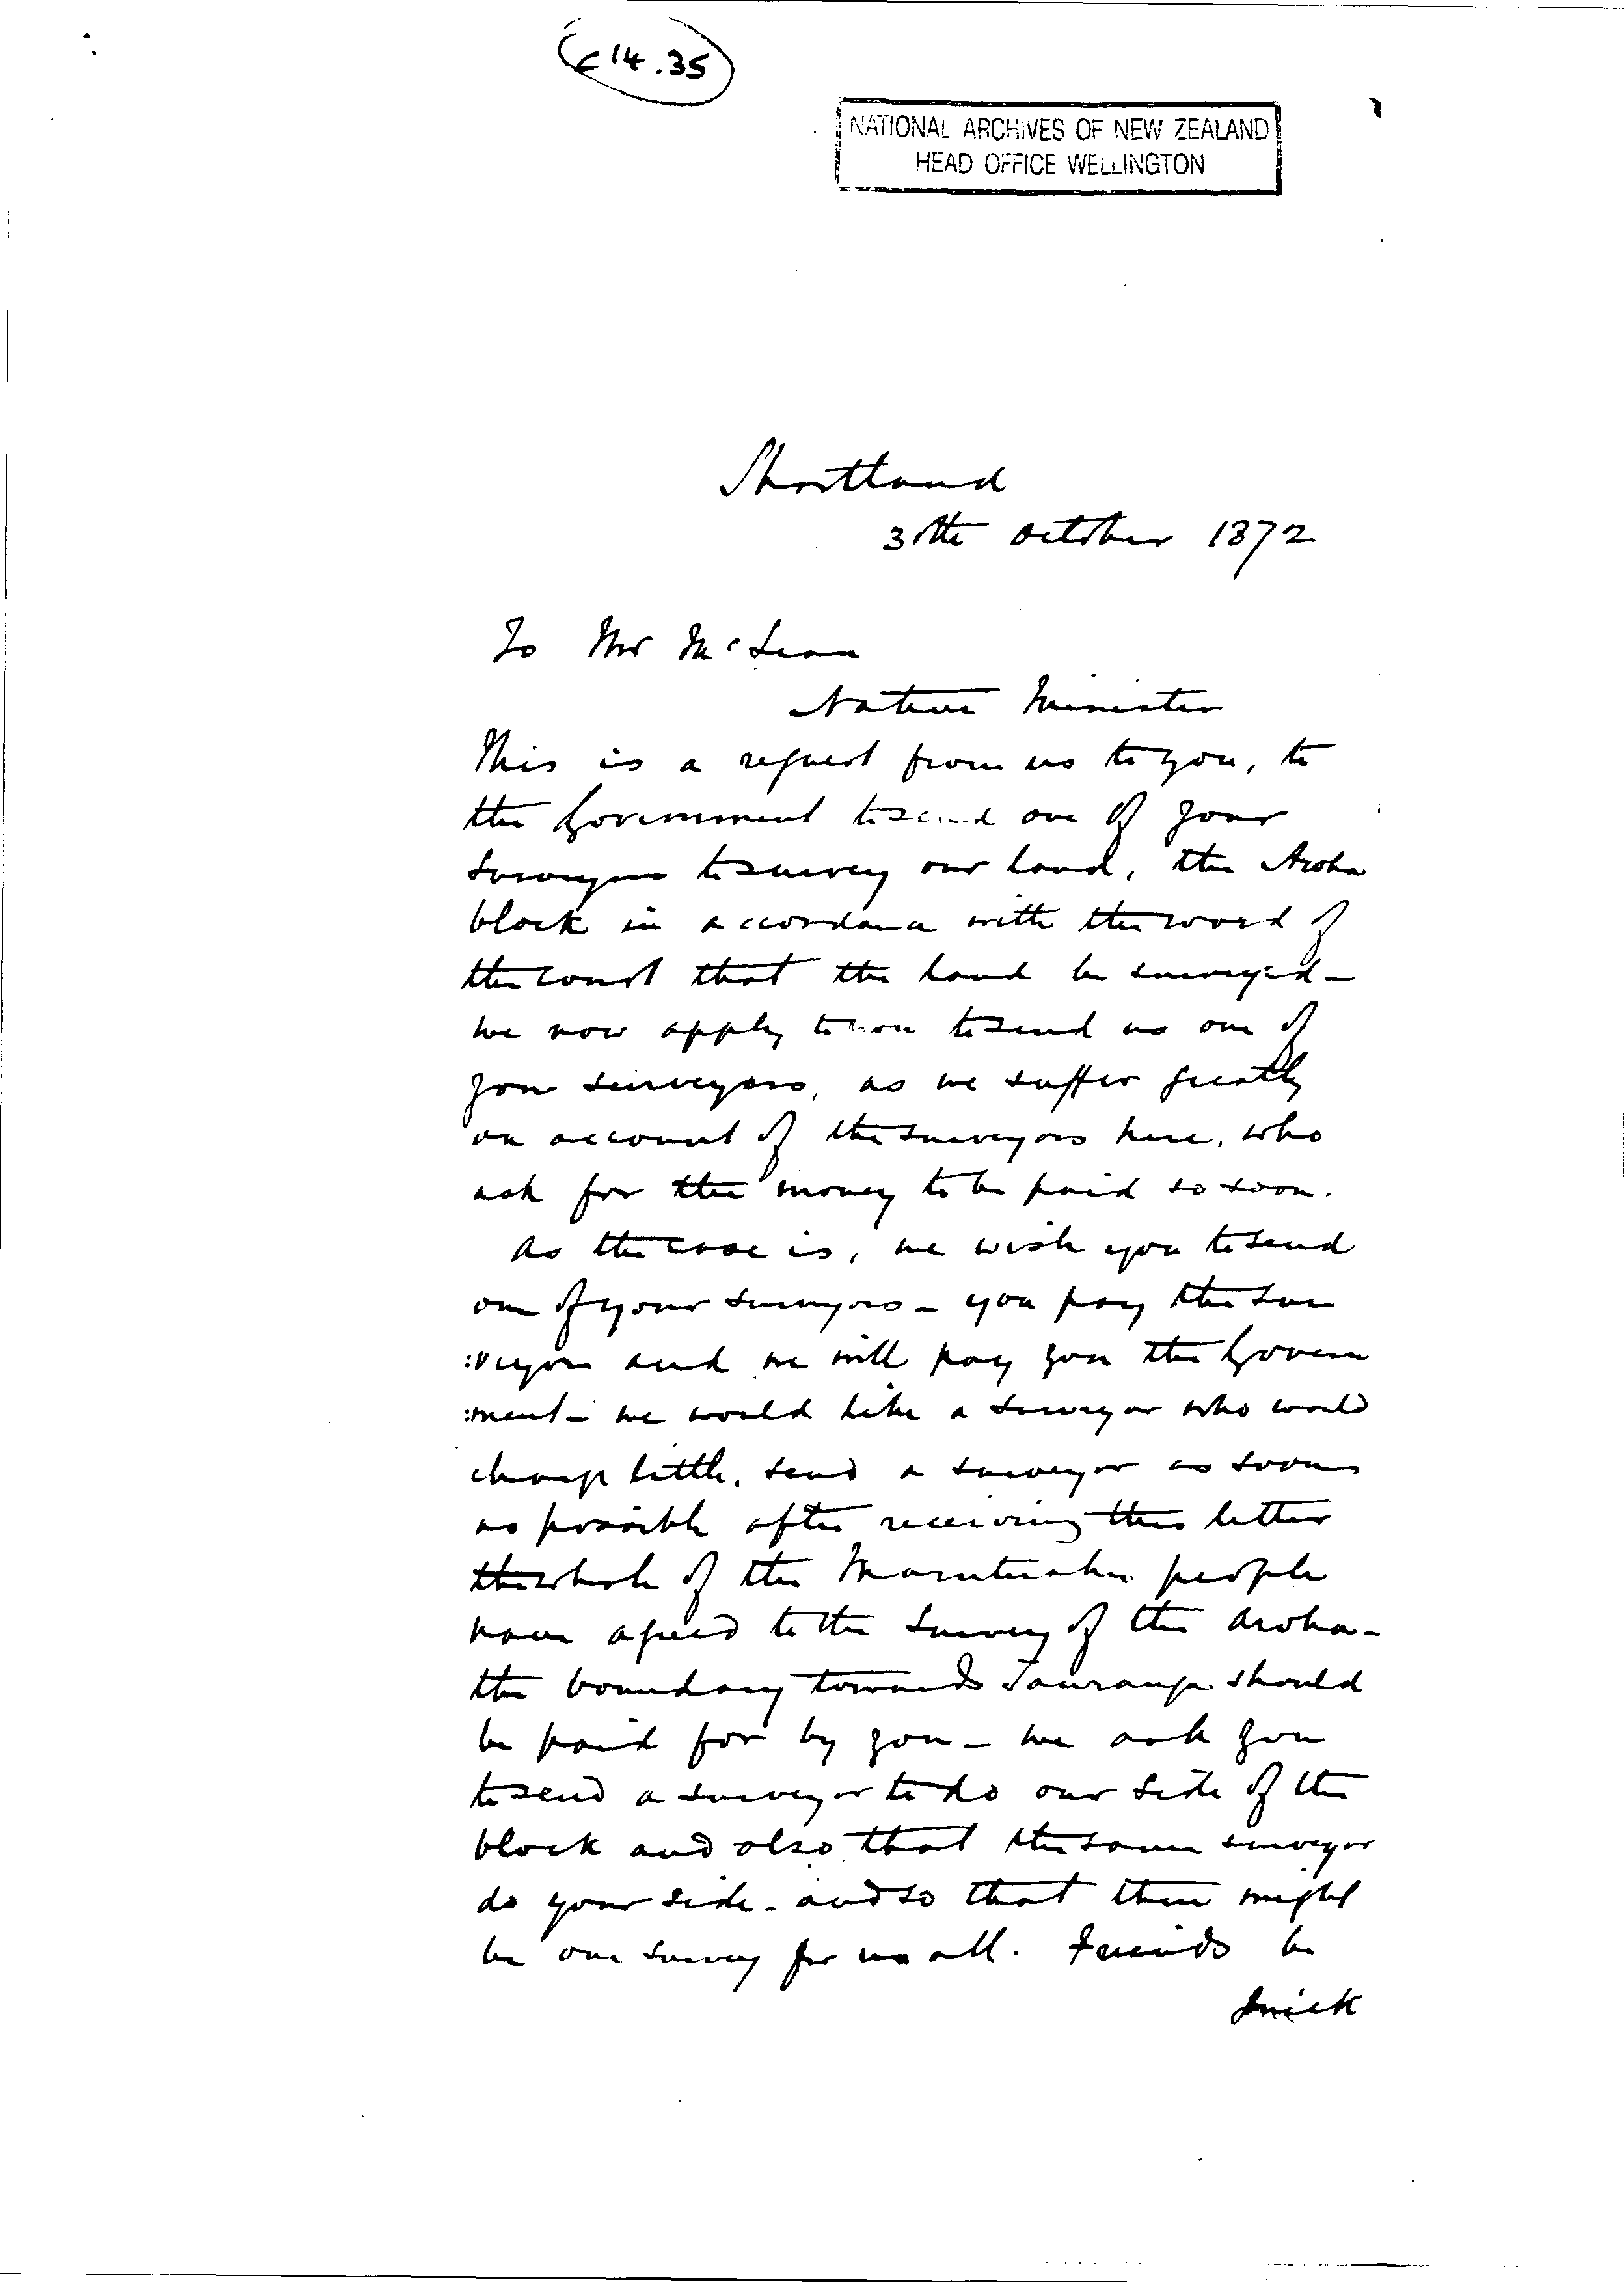 E14.35
NATIONAL ARCHIVES OF NEW ZEALAND
HEAD OFFICE WELLINGTON
Shortland
30th October 1872
To Mr McLean
Native Minister
This is a request from us to you, to
the Government to send one of your
surveyors to survey our land, the Aroha
block in accordance with the word of
the Court that the land be surveyed -
we now apply to you to send us one of
your surveyors, as we suffer greatly
on account of the surveyors here, who
ask for the money to be paid so soon.
As the case is, we wish you to send
one of your surveyors - you pay the sur
:veyor and we will pay you the Govern
:ment - we would like a surveyor who would
charge little, send a surveyor as soon
as possible after receiving this letter
the whole of the Marutuahu people
have agreed to the survey of the Aroha -
the boundary towards Tauranga should
be paid for by you - we ask you
to send a surveyor to do our side of the
block and also that the same surveyor
do your side - and so that there might
be one survey for us all. Friends be
quick